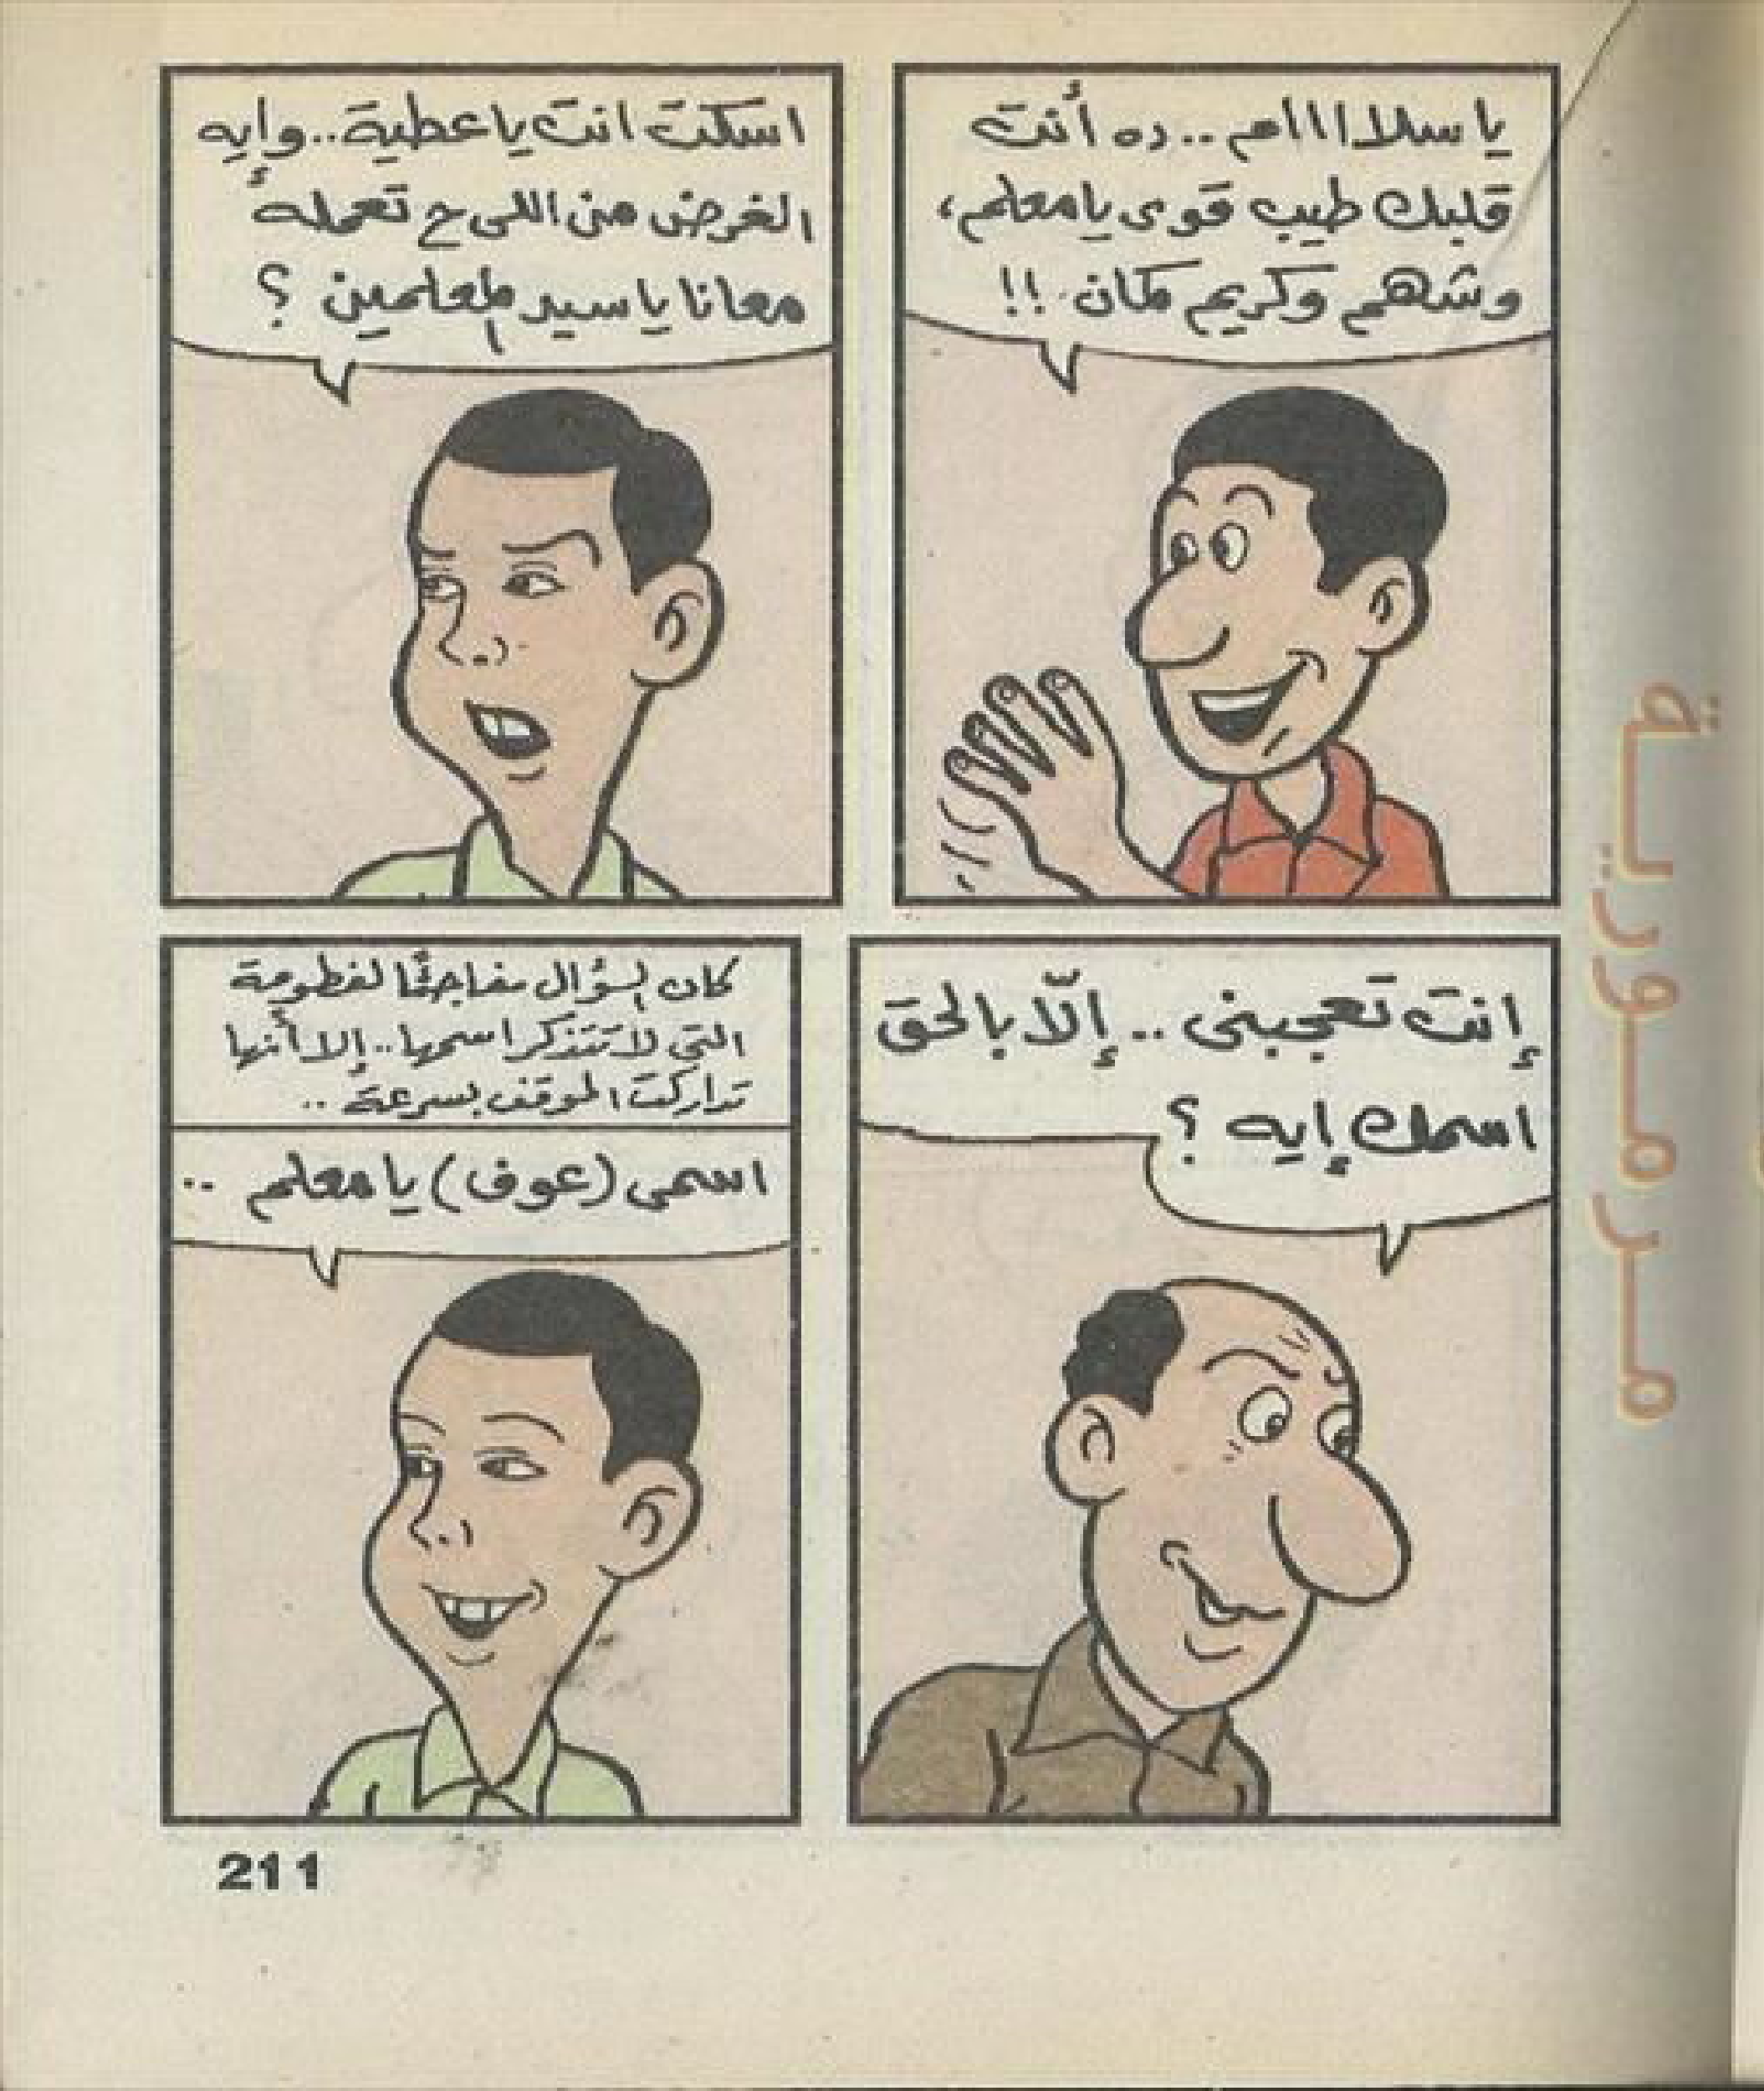 يا سلااااام .. ده أنت
قلبك طيب قوى يا معلم،
وشهم وكريم كمان !!
اسكت انت يا عطية.. وإيه
الغرض من اللى ح تعمله
معانا يا سيد المعلمين ؟
إنت تعجبنى .. إلّا بالحق
اسمك إيه ؟
كان السؤال مفاجئًا لفطومة
التي لا تتذكر اسمها.. إلا أنها
تداركت الموقف بسرعة ..
اسمى (عوف) يا معلم ..
مرمورية
211